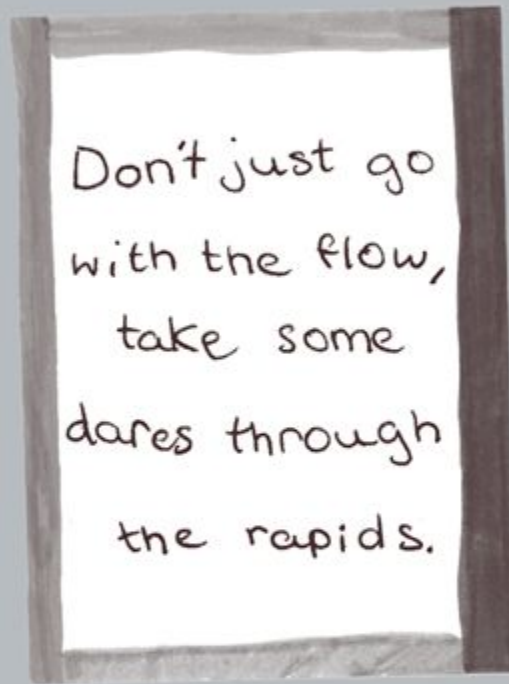 Don't just go
with the flow,
take some
dares through
the rapids.